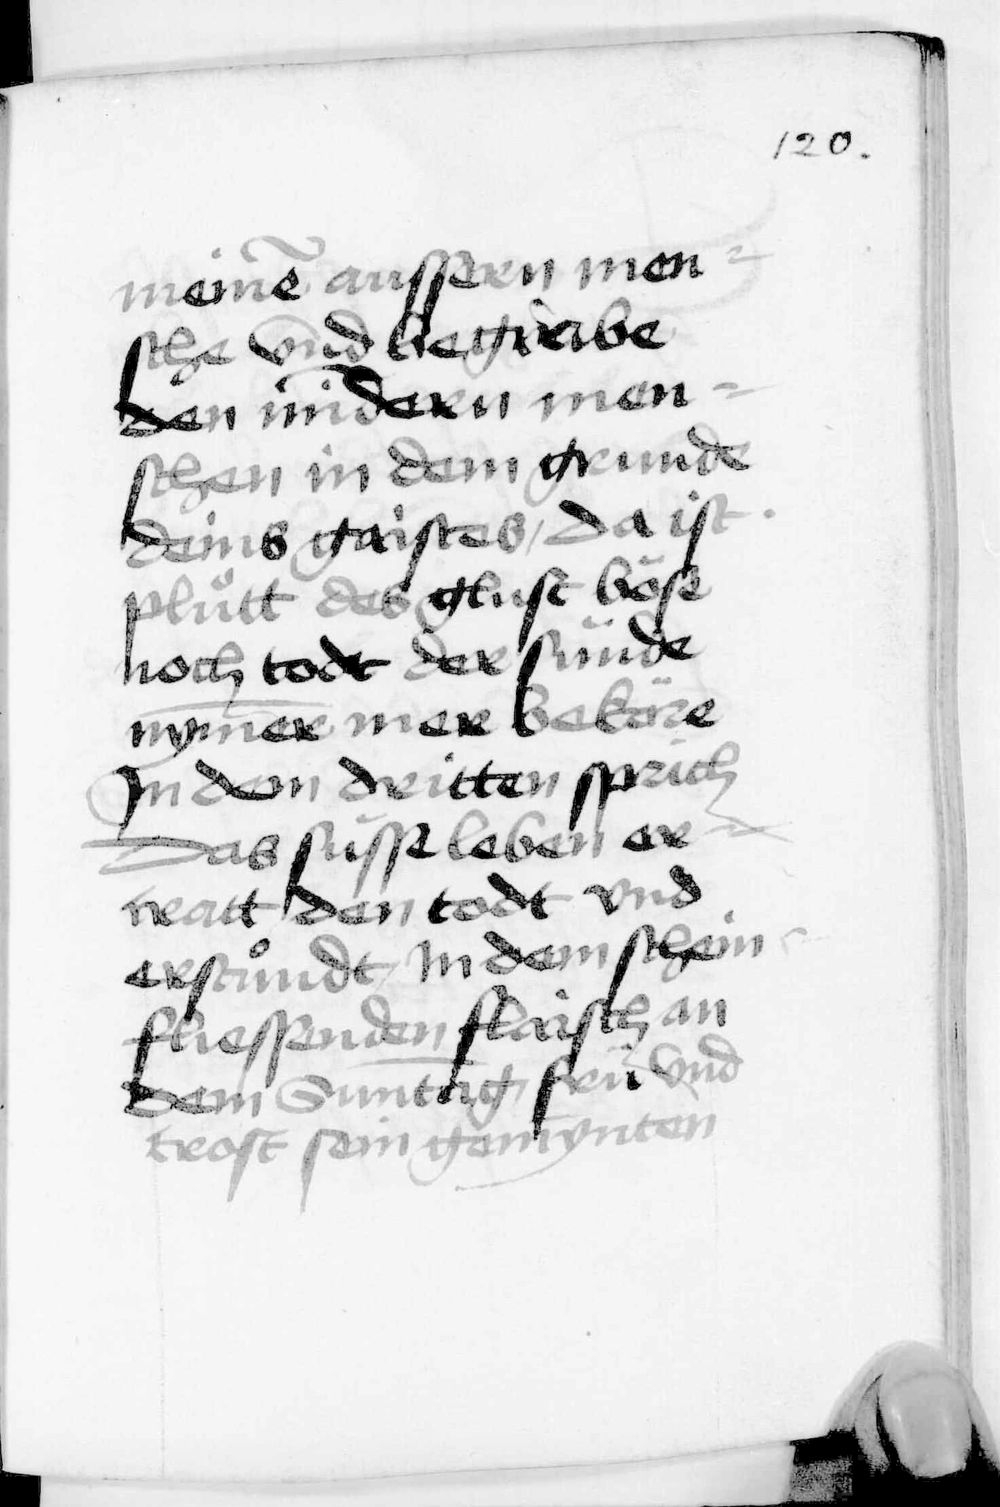 120.
meinē aussern men=
sche vnd begrabe
den inndern men=
schen in dem grunde
deins gaistes / da ist
plůtt des glust böse
noch todt der sünde
nym̄er mer beköre
In dem dritten sprich
Das süsse leben er=
tratt den todt vnd
erstůndt / In dem schein
fliessenden flaisch an
dem Sunntag frü vnd
trost sein gemynten